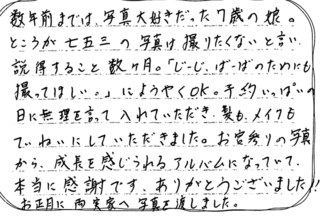 数年前までは、写真大好きだった7歳の娘。
ところが七五三の写真は撮りたくないと言い
説得すること数ヶ月。「じーじ、ばーばのためにも
撮ってほしい。」にようやくOK。予約いっぱいの
日に無理を言って入れていただき、髪も、メイクも
ていねいにしていただきました。お宮参りの写真
から、成長を感じられるアルバムになっていて、
本当に感謝です。ありがとうございました!!
お正月に両実家へ写真を渡しました。